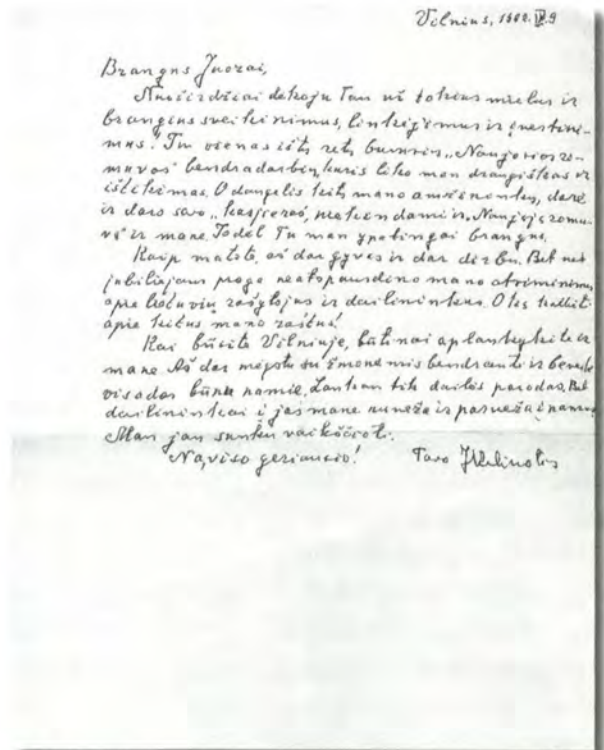 Vilnius, 1982.IV.9
Brangus Juozai,
Nuoširdžiai dėkoju Tau už tokius mielus ir
brangius sveikinimus, linkėjimus ir įvertini-
mus. Tu esi vienas iš tų retų „Naujosios ro-
muvos" bendradarbių, kuris liko man draugiškas ir
ištikimas. O daugelis kitų mano amžininkų, darė
ir daro savo „karjeras", niekindami ir „Naująją romu-
vą" ir mane. Todėl Tu man ypatingai brangus.
Kaip matote, aš dar gyvas ir dar dirbu. Bet net
jubiliejaus proga neatspausdino mano atsiminimų
apie lietuvių rašytojus ir dailininkus. O ką kalbėti
apie kitus mano raštus!
Kai būsite Vilniuje, būtinai aplankykite ir
mane. Aš dar mėgstu su žmonėmis bendrauti ir beveik
visados būnu namie. Lankau tik dailės parodas. Bet
dailininkai į jas mane nuveža ir parveža į namus.
Man jau sunku vaikščioti.
Na, viso geriausio! Tavo JKeliuotis